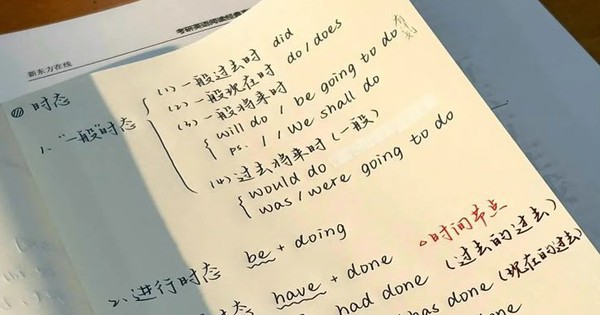 考研英语阅读经典
新东方在线
时态
1. "一般"时态
(1) 一般过去时 did
(2) 一般现在时 do/does
(3) 一般将来时
will do / be going to do
ps. I / We shall do
(4) 过去将来时 (一般)
would do
was/were going to do
2. 进行时态 be + doing
时间节点
态 have + done
had done (过去的过去)
has done (现在的过去)